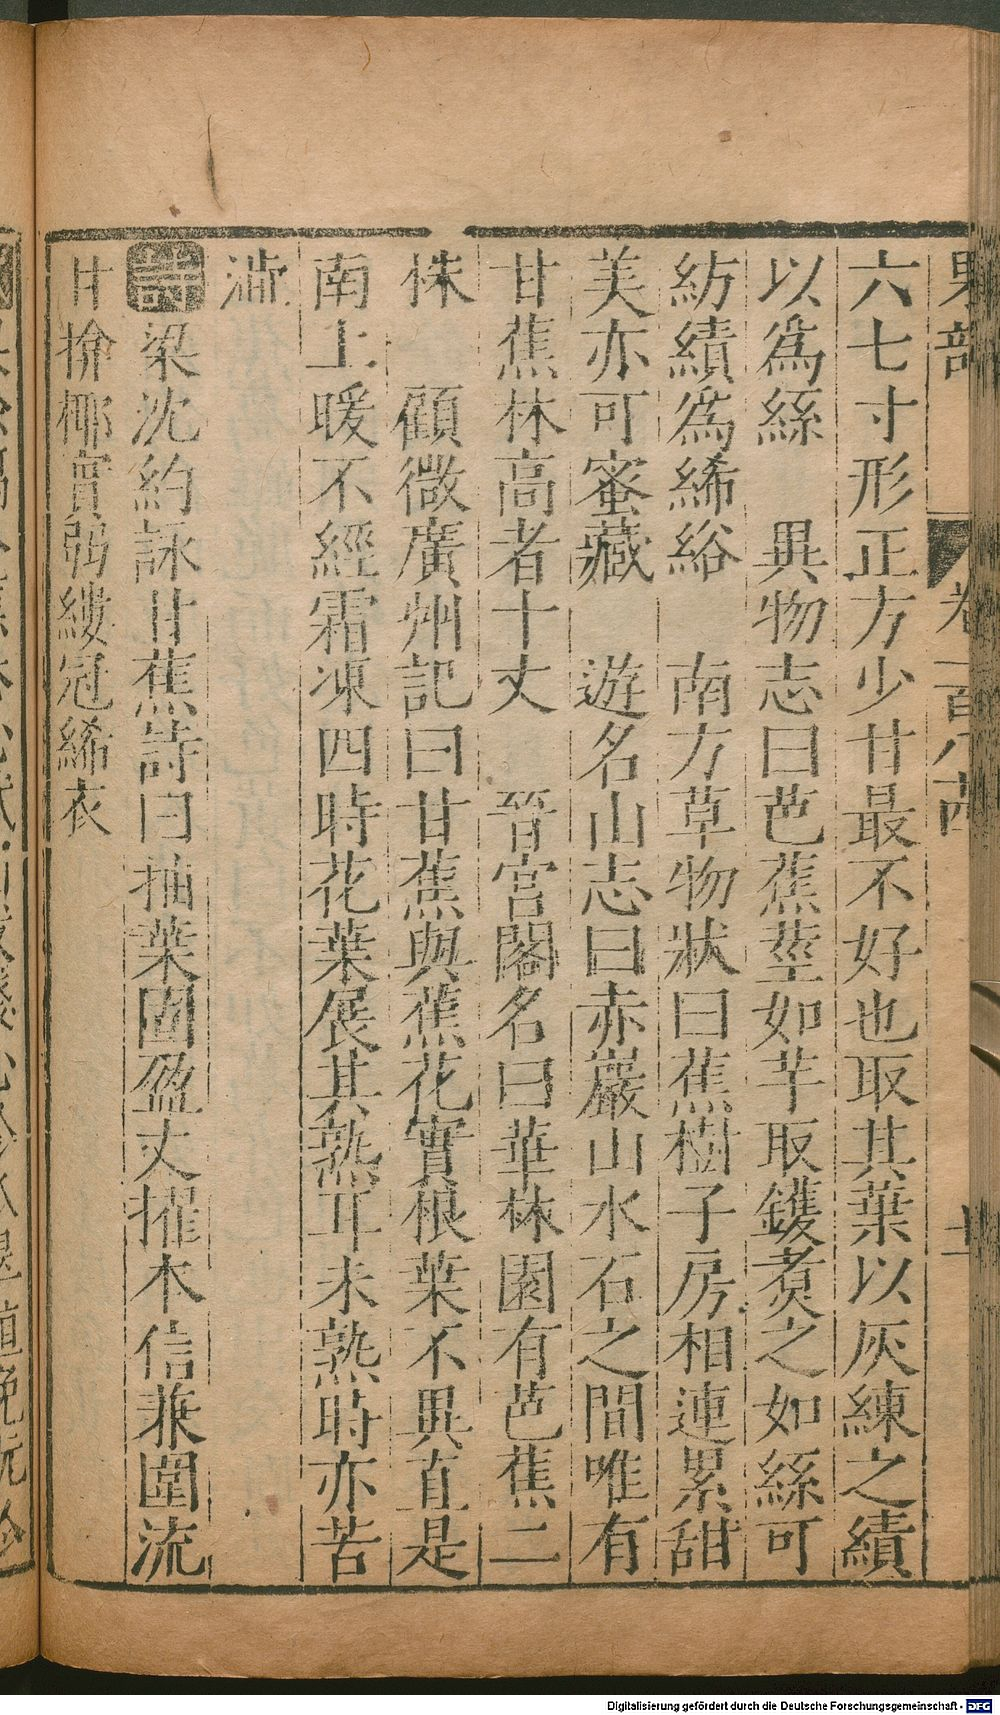 六七寸形正方少甘最不好也取其葉以灰練之績
以為絲　異物志曰芭蕉莖如芋取鑊煑之如絲可
紡績為絺綌　南方草物狀曰蕉樹子房相連累甜
美亦可蜜藏　遊名山志曰赤巖山水石之間唯有
甘蕉林高者十丈　晉宮閣名曰華林園有芭蕉二
株　顧微廣州記曰甘蕉與蕉花實根葉不異直是
南土暖不經霜凍四時花葉展其熟耳未熟時亦苦
澁
詩梁沈約詠甘蕉詩曰抽葉固盈丈擢木信兼圍流
甘揜椰實弱縷冠絺衣
果部　卷一百八前　十一
Digitalisierung gefördert durch die Deutsche Forschungsgemeinschaft - DFG